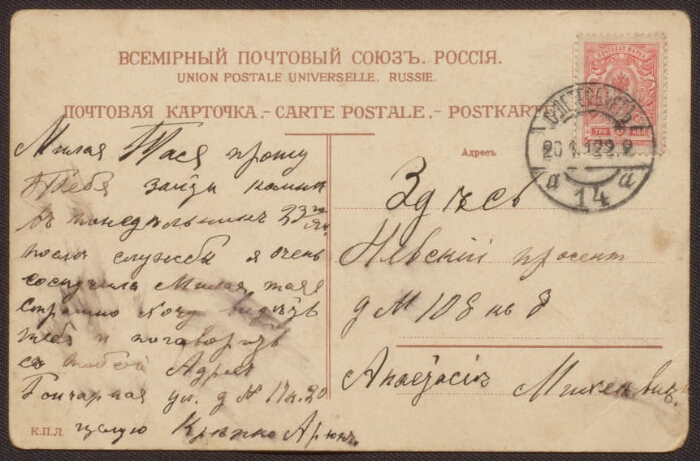 ВСЕМІРНЫЙ ПОЧТОВЫЙ СОЮЗЪ. РОССІЯ.
UNION POSTALE UNIVERSELLE. RUSSIE.
ПОЧТОВАЯ КАРТОЧКА.-CARTE POSTALE.-POSTKARTE
Адресъ.
Милая Тася прошу
Тебя зайди комнѣ
въ понедѣльникъ 23го
после службы я очень
соскучила Милая тая
страшно хочу видѣть
тебя и поговорить
съ тобой Адрес
Гончарная ул. д № 17 к. 20
целую Крѣпко
К.П.Л.
Здѣсь
Невскій
д № 108 кв 8
14
а а